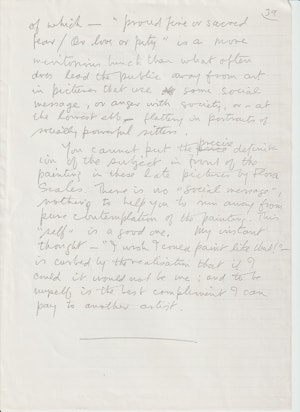 39
of which — "proud fire or sacred
fear / Or love or pity" is a more
meritorious hunch than what often
does lead the public away from art
in pictures that use some social
message, or anger with society, or – at
the lowest ebb – flattery in portraits of
socially powerful sitters.
You cannot put the precise definite
of the subject in front of the
painting in these late pictures by Flora
Scales. There is no "social message",
nothing to help you to run away from
pure contemplation of the painting. This
"self" is a good one. My instant
thought – "I wish I could paint like that!" –
is curbed by the realisation that if I
could it would not be me; and to be
myself is the best complement I can
pay to another artist.